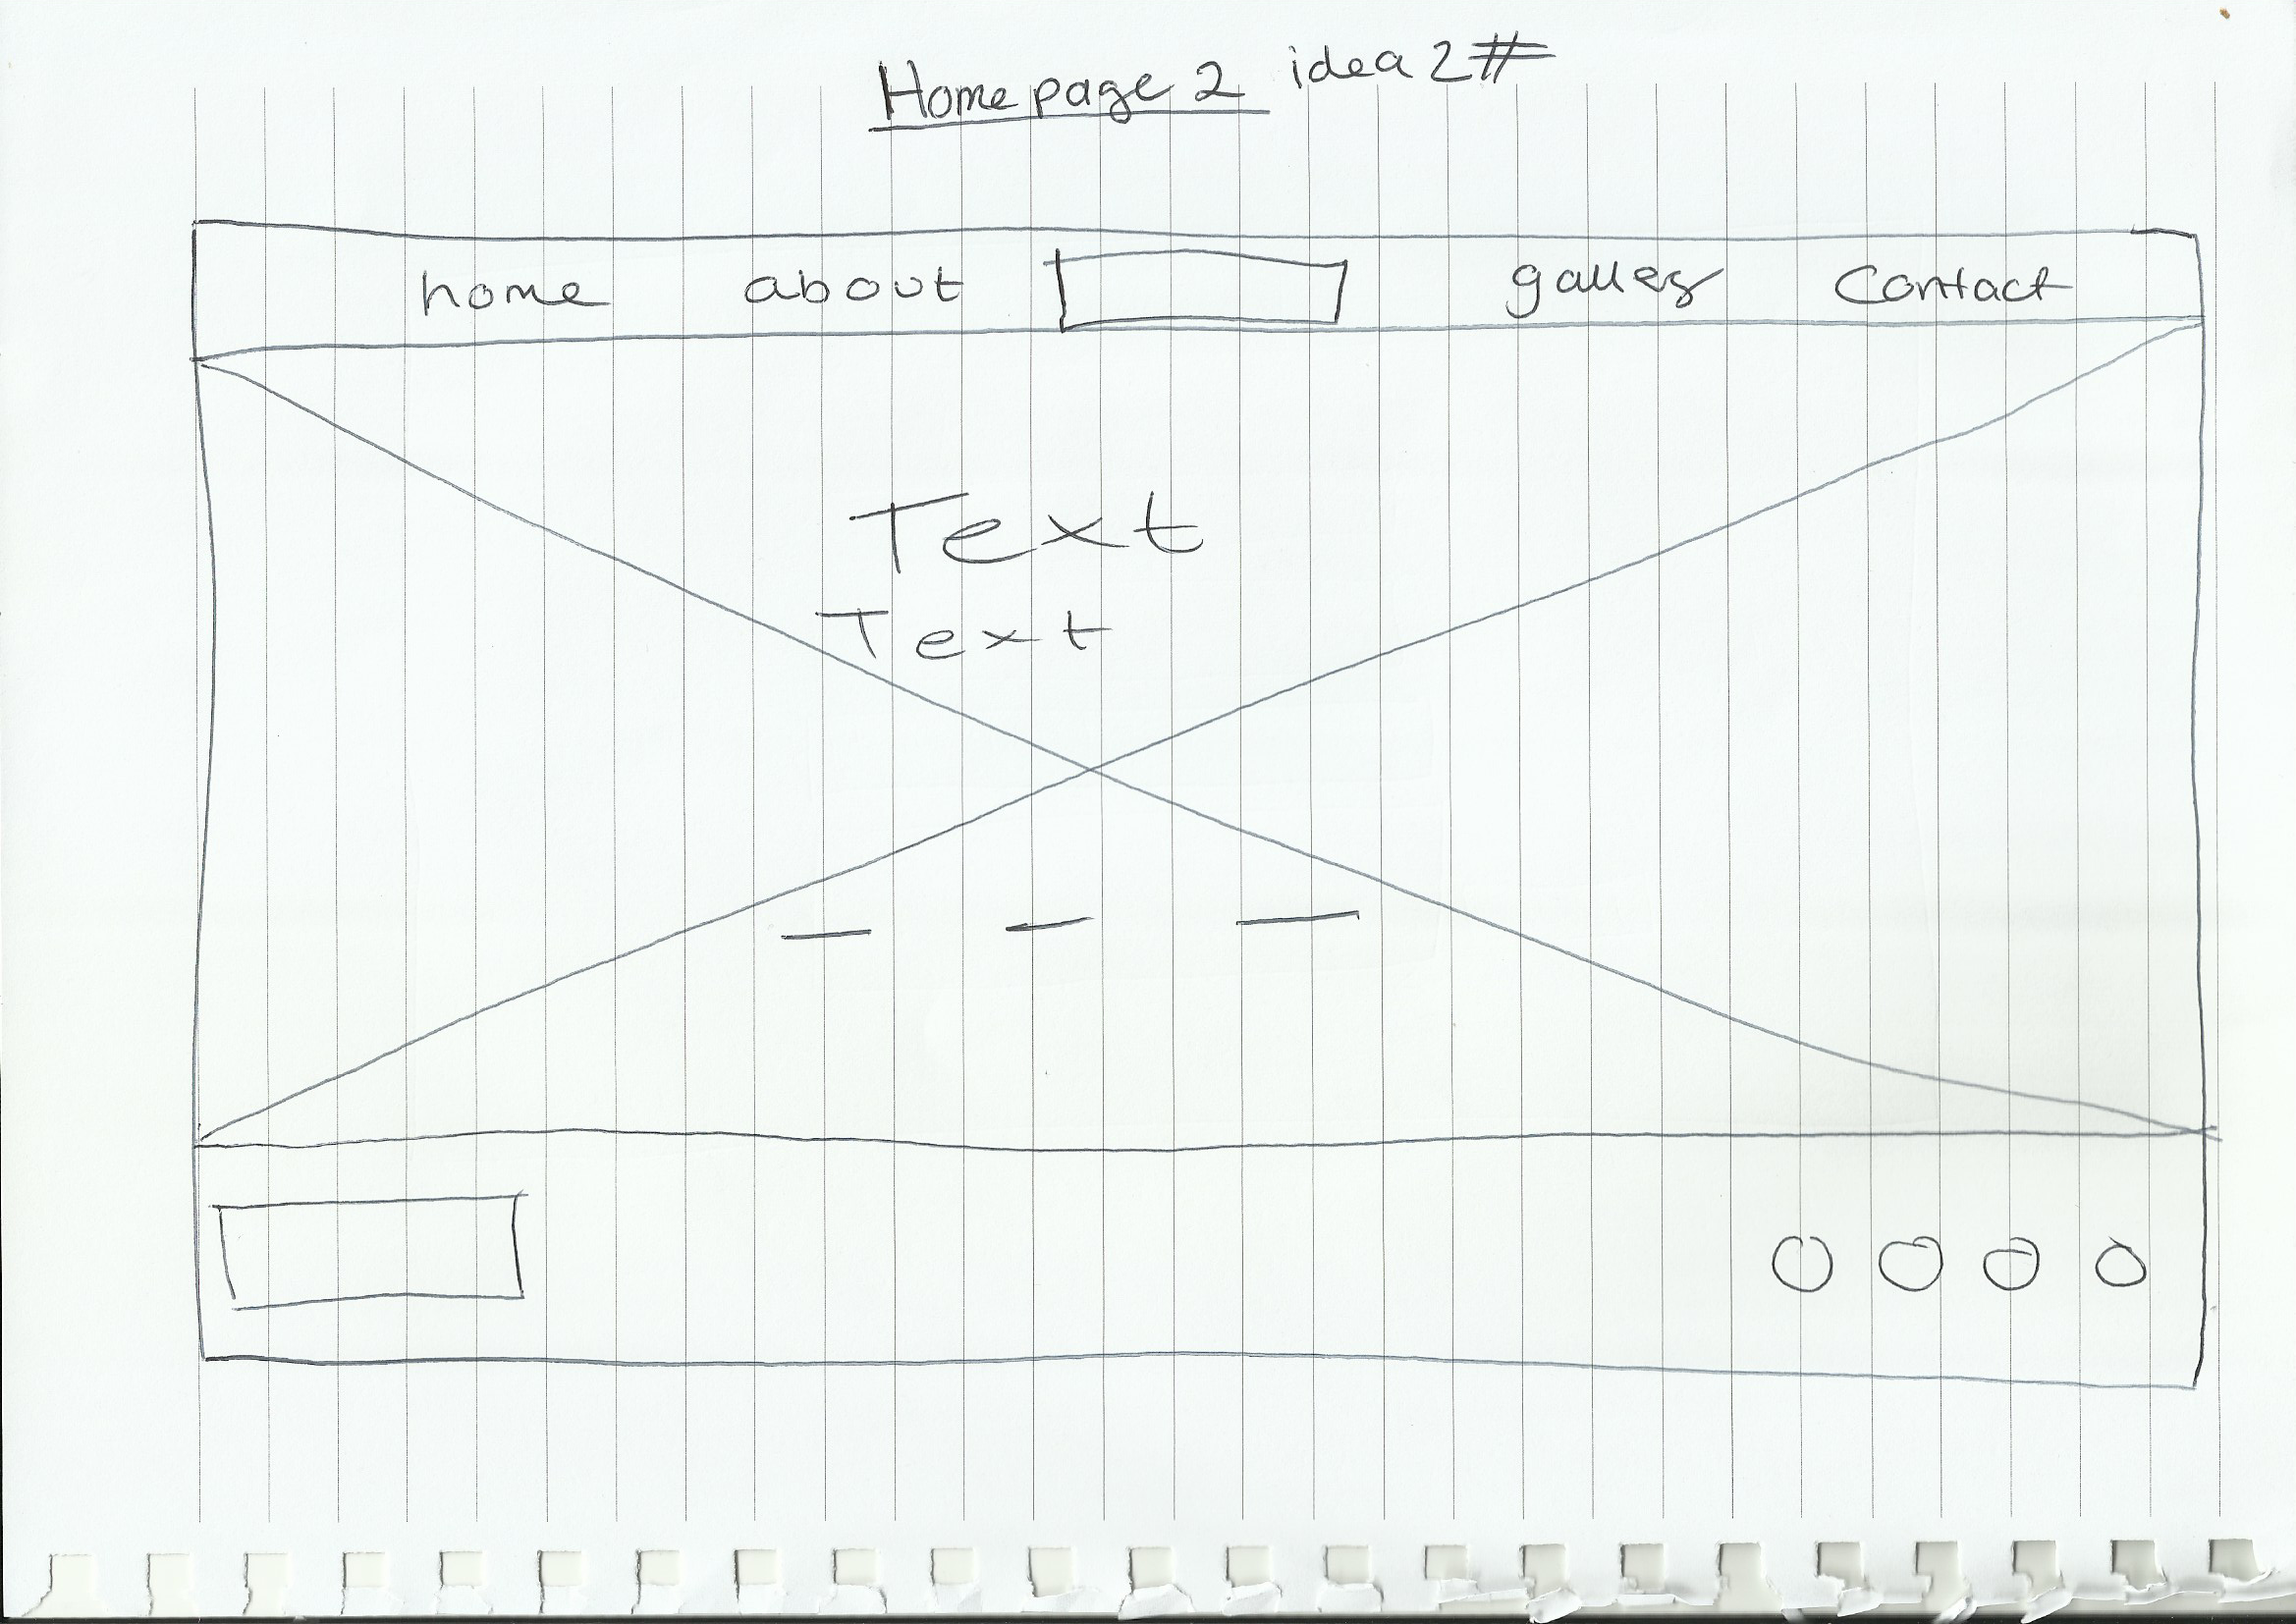 Homepage 2 idea 2#
home about gallery contact
Text
Text